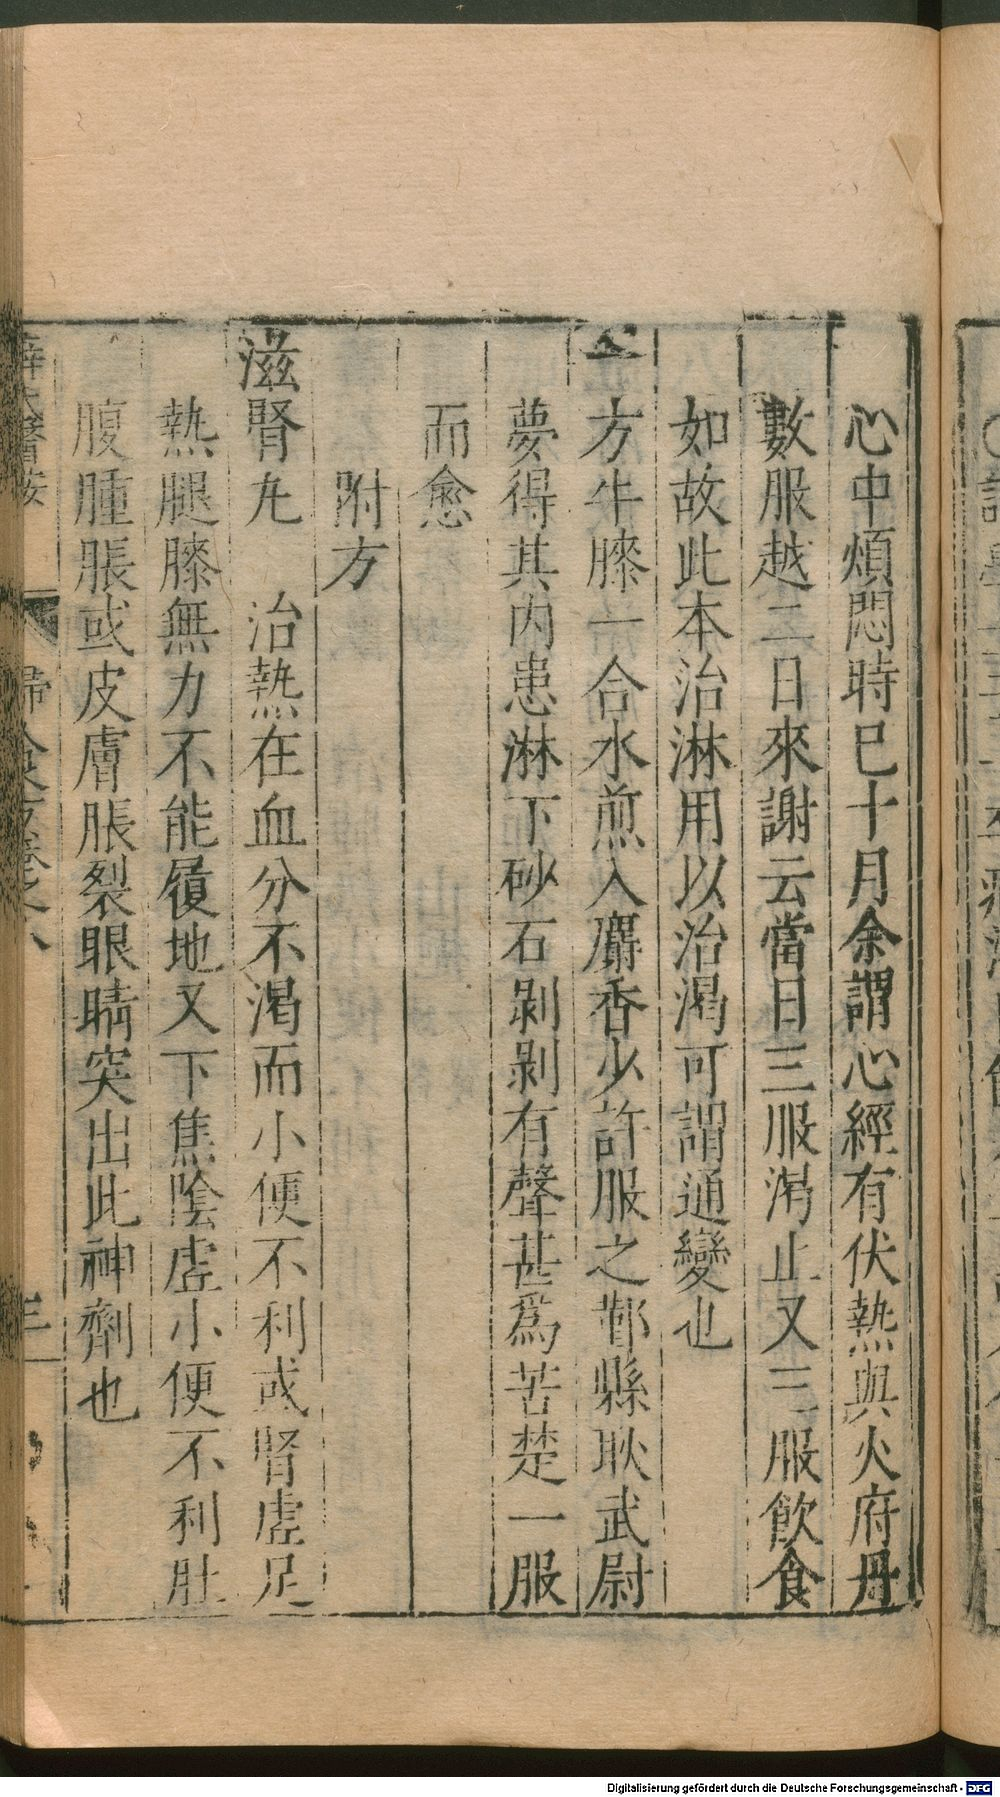 心中煩悶時巳十月余謂心經有伏熱與火府丹
數服越二日來謝云當日三服渴止又三服飲食
如故此本治淋用以治渴可謂通變也
一方牛膝一合水煎入麝香少許服之鄞縣耿武尉
夢得其内患淋下砂石剥剥有聲甚爲苦楚一服
而愈
附方
滋腎丸　治熱在血分不渴而小便不利或腎虚足
熱腿膝無力不能履地又下焦陰虚小便不利肚
腹腫脹或皮膚脹裂眼睛突出此神劑也
Digitalisierung gefördert durch die Deutsche Forschungsgemeinschaft - DFG